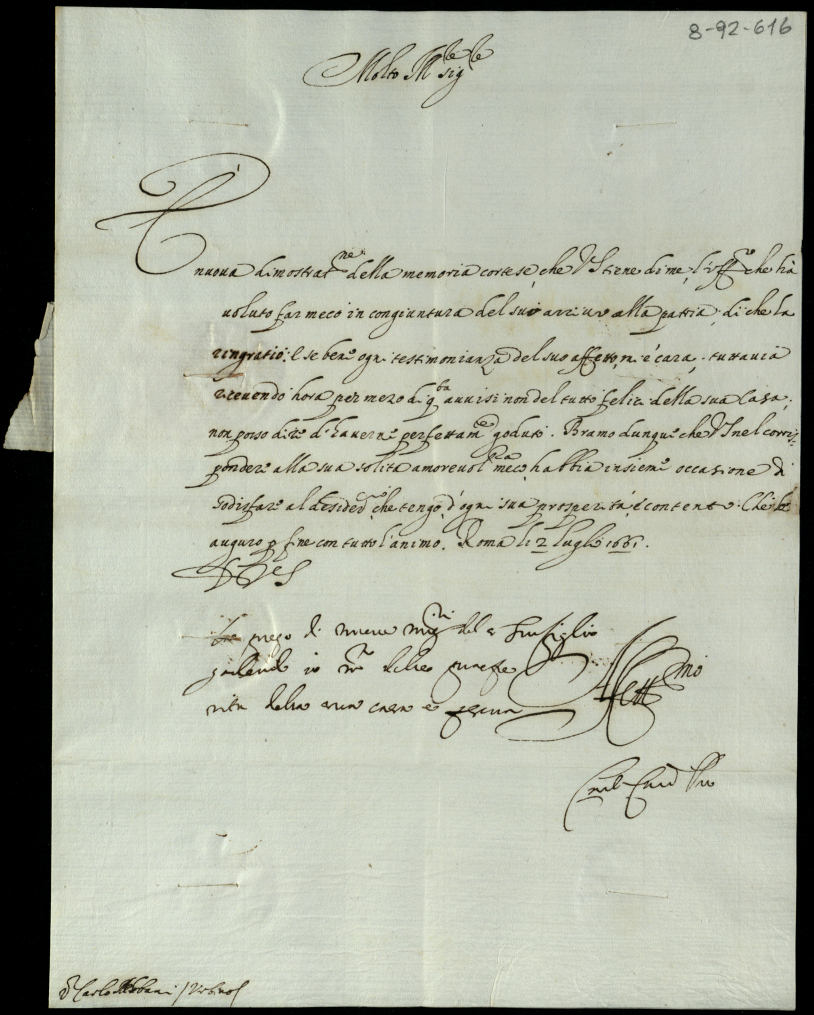 8-92-616
Molto Ill.re Sig.re
È nuova dimostrat.ne della memoria cortese, che V S tiene di me, l'uff.o che hà
voluto far meco in congiuntura del suo arrivo alla patria; di che la
ringratio; E se bene ogni testimonianza del suo affetto, m'è cara, tuttavia
ricevendo hora per mezo di q.sta avvisi non del tutto felici della sua Casa;
non posso dire d'haverne perfettam.e goduto. Bramo dunque che V S nel corris-
pondere alla sua solita amorevol.za meco, habbia insieme occasione di
sodisfare al desiderio che tengo d'ogni sua prosperità, e contento. Che le
auguro p fine con tutto l'animo. Roma li 2 luglio 1661.
La prego di nuove del figlio
godendo io della
della sua casa e
Aff.mo
Card Pio
S. Carlo Albani / Urbino